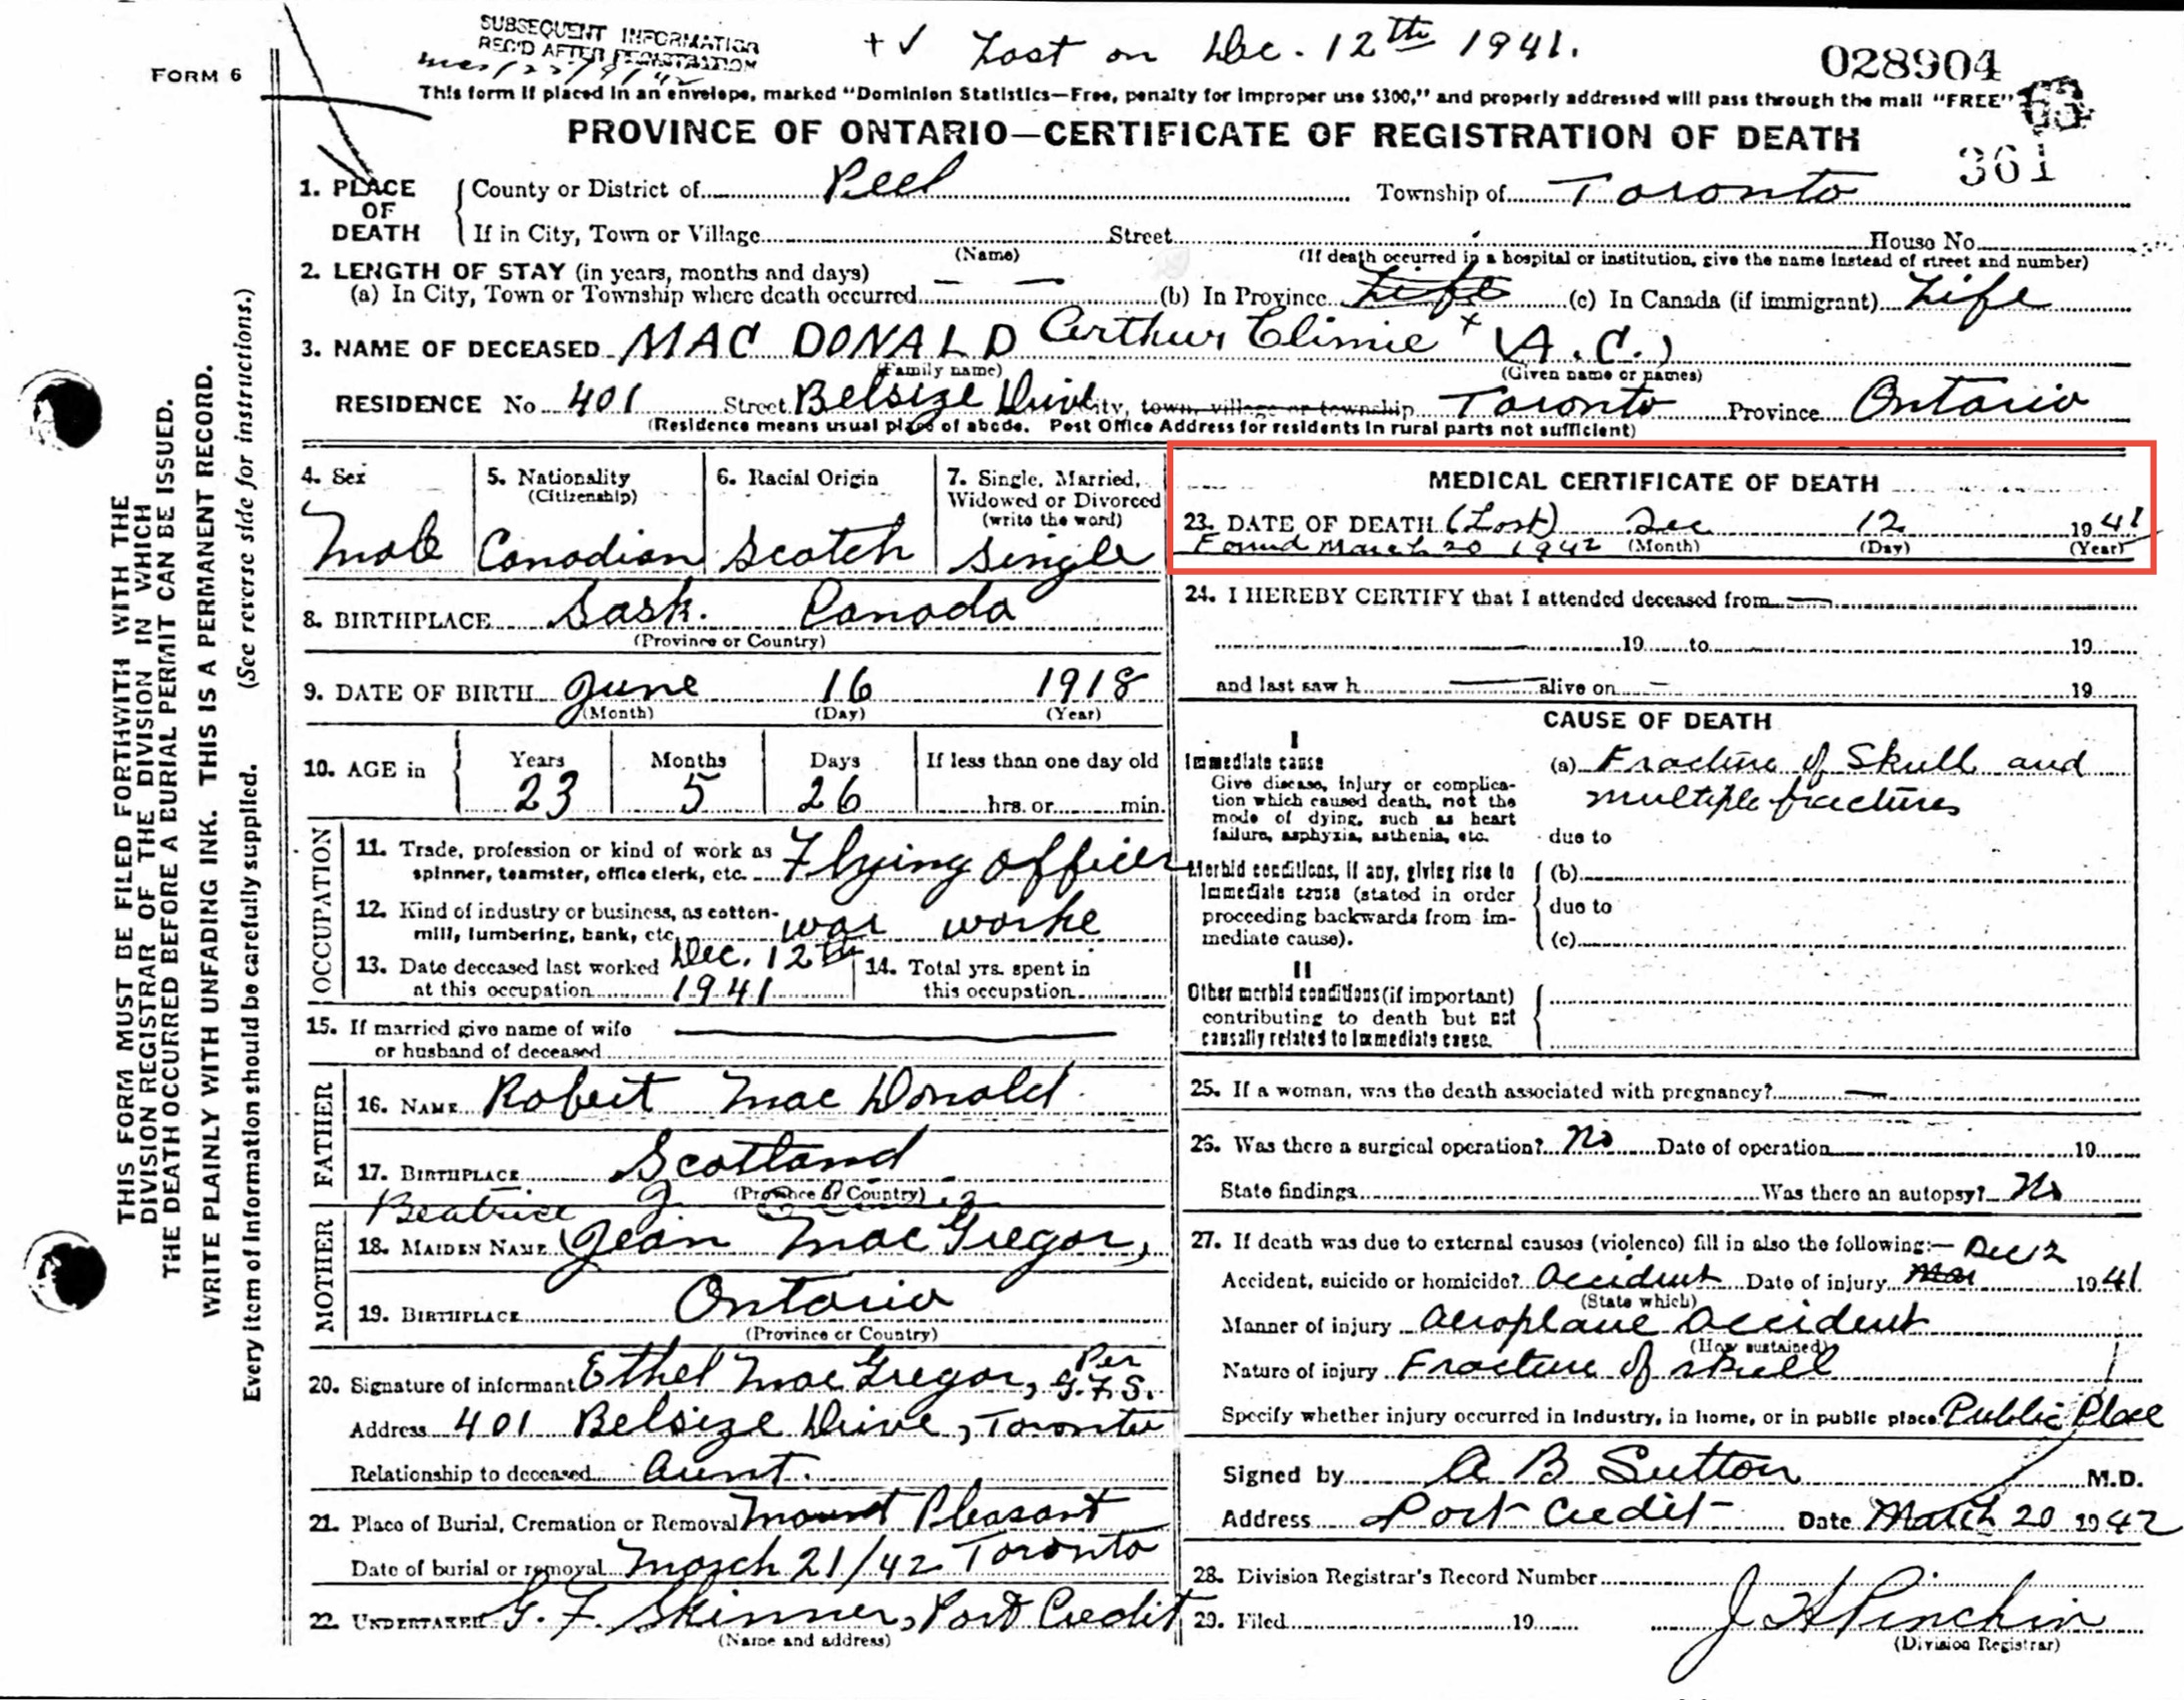 SUBSEQUENT INFORMATION
REC'D AFTER REGISTRATION
+ ✓ Lost on Dec. 12th 1941.
028904
FORM 6
This form if placed in an envelope, marked "Dominion Statistics—Free, penalty for improper use $300," and properly addressed will pass through the mail "FREE"
PROVINCE OF ONTARIO—CERTIFICATE OF REGISTRATION OF DEATH
361
1. PLACE OF DEATH
County or District of Peel Township of Toronto
If in City, Town or Village Street House No.
(Name) (If death occurred in a hospital or institution, give the name instead of street and number)
2. LENGTH OF STAY (in years, months and days)
(a) In City, Town or Township where death occurred — — (b) In Province Life (c) In Canada (if immigrant) Life
3. NAME OF DECEASED MAC DONALD Arthur Climie + (A.C.)
(Family name) (Given name or names)
RESIDENCE No. 401 Street Belsize Drive City, town, village or township Toronto Province Ontario
(Residence means usual place of abode. Post Office Address for residents in rural parts not sufficient)
4. Sex
Male
5. Nationality
(Citizenship)
Canadian
6. Racial Origin
Scotch
7. Single, Married,
Widowed or Divorced
(write the word)
Single
8. BIRTHPLACE Sask. Canada
(Province or Country)
9. DATE OF BIRTH June 16 1918
(Month) (Day) (Year)
10. AGE in
Years Months Days If less than one day old
23 5 26 hrs. or min.
OCCUPATION
11. Trade, profession or kind of work as
spinner, teamster, office clerk, etc. Flying Officer
12. Kind of industry or business, as cotton-
mill, lumbering, bank, etc. war worke
13. Date deceased last worked Dec. 12th
at this occupation 1941
14. Total yrs. spent in
this occupation
15. If married give name of wife
or husband of deceased
FATHER
16. NAME Robert Mac Donald
17. BIRTHPLACE Scotland
(Province or Country)
MOTHER
Beatrice
18. MAIDEN NAME Jean MacGregor,
19. BIRTHPLACE Ontario
(Province or Country)
20. Signature of informant Ethel MacGregor, Per G.F.S.
Address 401 Belsize Drive, Toronto
Relationship to deceased Aunt.
21. Place of Burial, Cremation or Removal Mount Pleasant
Date of burial or removal March 21/42 Toronto
22. UNDERTAKER G. F. Skinner, Port Credit
(Name and address)
MEDICAL CERTIFICATE OF DEATH
23. DATE OF DEATH (Lost) Dec 12 1941
Found March 20 1942 (Month) (Day) (Year)
24. I HEREBY CERTIFY that I attended deceased from —
19 to 19
and last saw h — alive on — 19
CAUSE OF DEATH
I
Immediate cause
Give disease, injury or complica-
tion which caused death, not the
mode of dying, such as heart
failure, asphyxia, asthenia, etc.
(a) Fracture of Skull and
multiple fractures
due to
Morbid conditions, if any, giving rise to
immediate cause (stated in order
proceeding backwards from im-
mediate cause).
(b)
due to
(c)
II
Other morbid conditions (if important)
contributing to death but not
causally related to immediate cause.
25. If a woman, was the death associated with pregnancy? —
26. Was there a surgical operation? No Date of operation 19
State findings Was there an autopsy? No
27. If death was due to external causes (violence) fill in also the following:— Dec 12
Accident, suicide or homicide? Accident Date of injury Mar 1941
(State which)
Manner of injury Aeroplane Accident
(How sustained)
Nature of injury Fracture of skull
Specify whether injury occurred in industry, in home, or in public place Public Place
Signed by A B Sutton M.D.
Address Port Credit Date March 20 1942
28. Division Registrar's Record Number
29. Filed 19 J H Pinchin
(Division Registrar)
THIS FORM MUST BE FILED FORTHWITH WITH THE
DIVISION REGISTRAR OF THE DIVISION IN WHICH
THE DEATH OCCURRED BEFORE A BURIAL PERMIT CAN BE ISSUED.
WRITE PLAINLY WITH UNFADING INK. THIS IS A PERMANENT RECORD.
Every item of information should be carefully supplied. (See reverse side for instructions.)